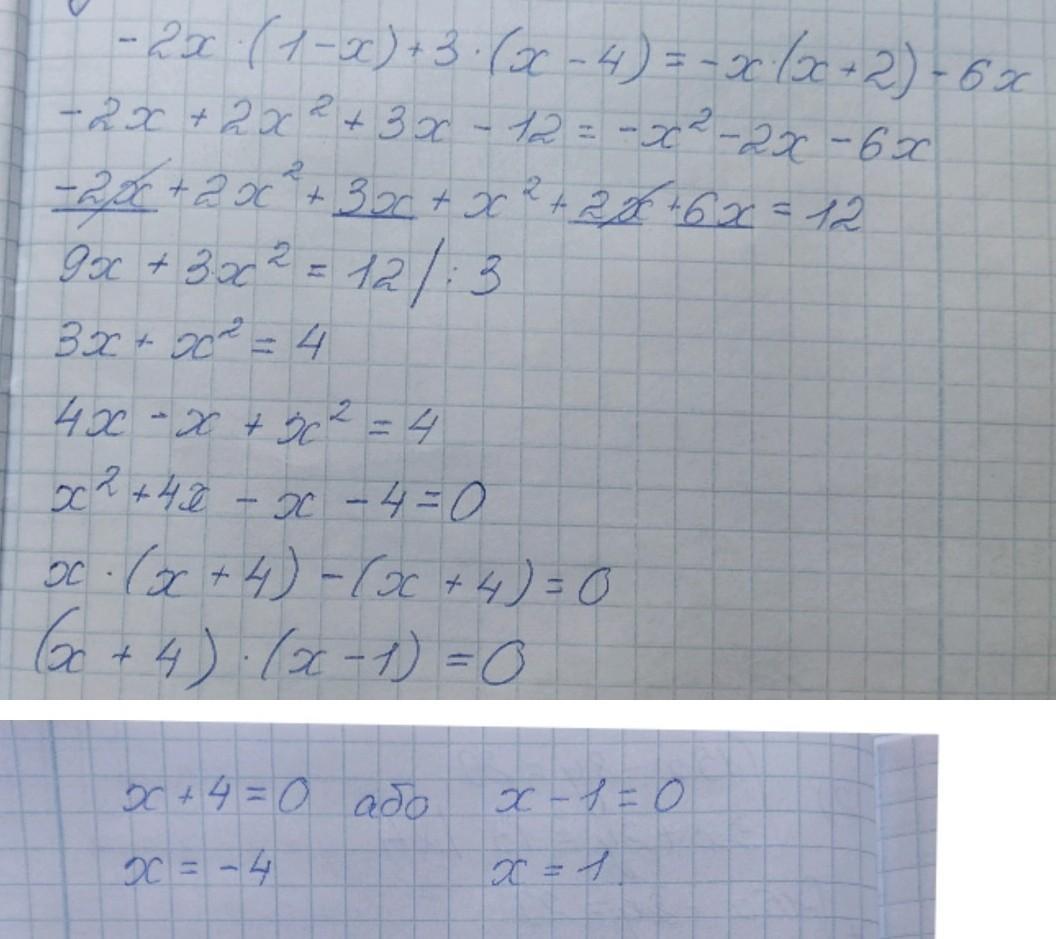 -2x·(1-x)+3·(x-4)=-x·(x+2)-6x
-2x+2x²+3x-12=-x²-2x-6x
-2x+2x²+3x+x²+2x+6x=12
9x+3x²=12/:3
3x+x²=4
4x-x+x²=4
x²+4x-x-4=0
x·(x+4)-(x+4)=0
(x+4)·(x-1)=0
x+4=0 або x-1=0
x=-4 x=1